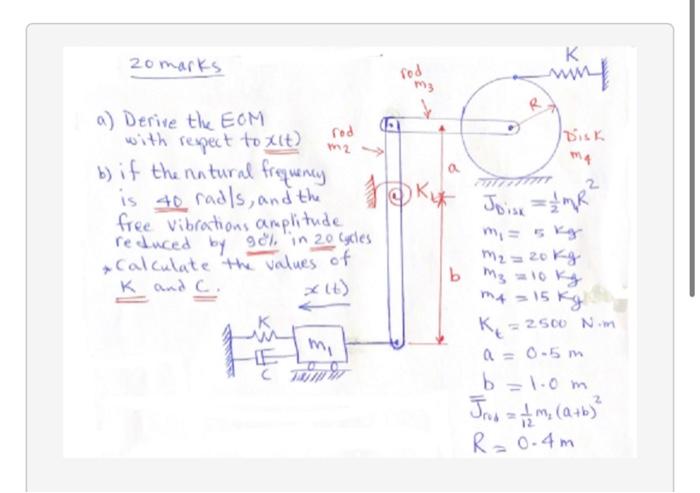 20 marks
a) Derive the EOM
with respect to x(t)
b) if the natural frequency
is 40 rad/s, and the
free vibrations amplitude
reduced by 90% in 20 cycles
* Calculate the values of
K and C.
x(t)
K
C
m₁
rod
m₂
rod
m₃
a
Kt
b
K
R
Disk
m₄
J_Disk = ½ m₄R²
m₁ = 5 Kg
m₂ = 20 Kg
m₃ = 10 Kg
m₄ = 15 Kg
Kt = 2500 N.m
a = 0.5 m
b = 1.0 m
J̄rod = 1/12 m₂ (a+b)²
R = 0.4 m